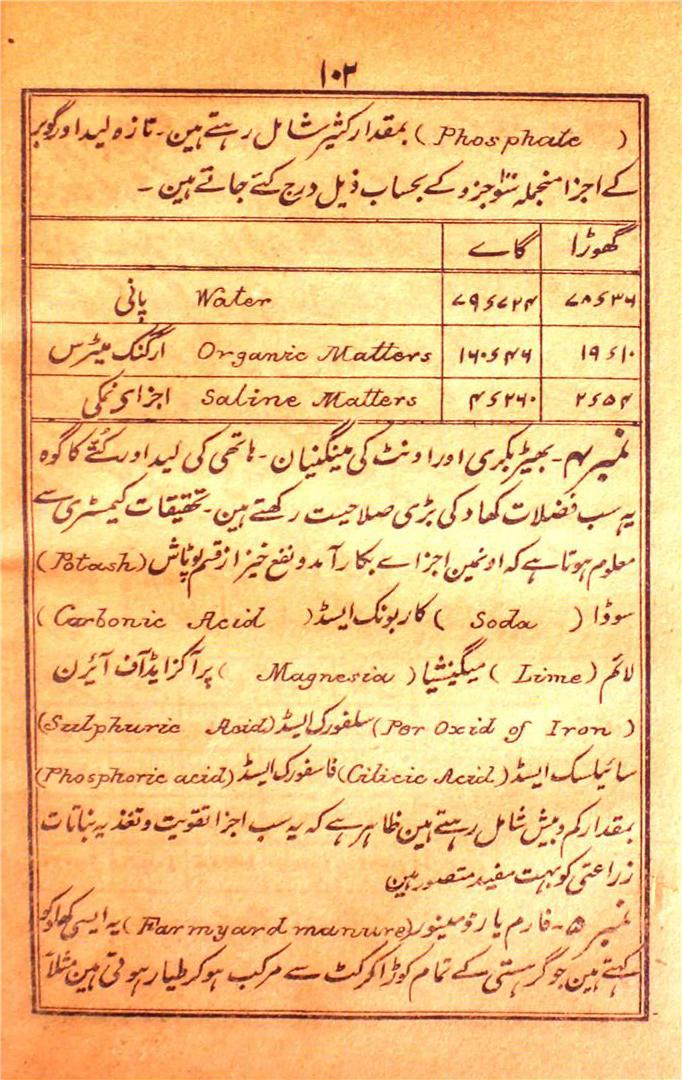 ۱۰۲
(Phosphate) بمقدار کثیر شامل رہتے ہین۔ تازہ لید اور گوبر
کے اجزا منجملہ سَو جزو کے بحساب ذیل درج کئے جاتے ہین۔
گھوڑا گاے
۷۸٫۳۶ ۷۹٫۷۲۴ Water پانی
۱۹٫۱۰ ۱۶٫۰۴۶ Organic Matters ارگنک میٹرس
۲٫۵۴ ۴٫۲۶۰ Saline Matters اجزای نمکی
نمبر ۴۔ بھیڑ بکری اور اونٹ کی مینگنیان۔ ہاتھی کی لید اور کُتّے کا گوہ
یہ سب فضلات کھاد کی بڑی صلاحیت رکھتے ہین۔ تحقیقات کیمسٹری سے
معلوم ہوتا ہے کہ اونمین اجزاے بکار آمد و نفع خیز از قسم پوٹاش (Potash)
سوڈا (Soda) کاربونک ایسڈ (Carbonic Acid)
لائم (Lime) میگنیشیا (Magnesia) پر آگزایڈ آف آئیرن
(Per Oxid of Iron) سلفورک ایسڈ (Sulphuric Acid)
سائیلسک ایسڈ (Cilicic Acid) فاسفورک ایسڈ (Phosphoric acid)
بمقدار کم و بیش شامل رہتے ہین ظاہر ہے کہ یہ سب اجزا تقویت و تغذیہ نباتات
زراعتی کو بہت مفید متصور ہین
نمبر ۵۔ فارم یارڈ مینور (Farmyard manure) یہ ایسی کھاد کو
کہتے ہین جو گرہستی کے تمام کوڑا کرکٹ سے مرکب ہو کر طیار ہوتی ہین مثلاً